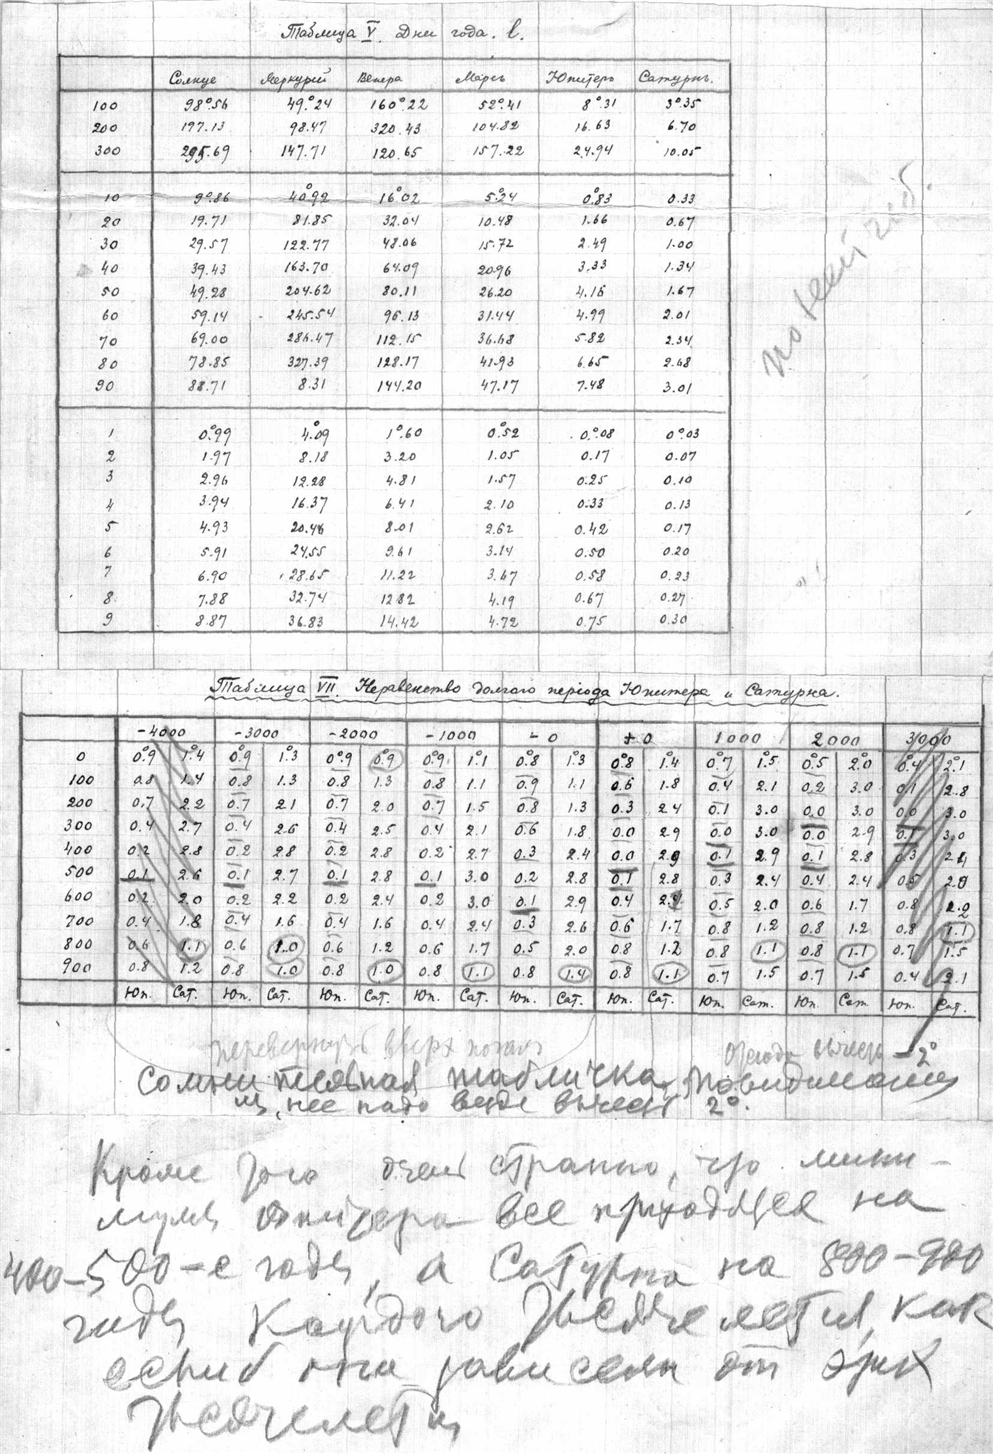 Таблица V. Дни года. t.
Солнце Меркурій Венера Марсъ Юпитеръ Сатурнъ.
100 98°.56 49°.24 160°.22 52°.41 8°.31 3°.35
200 197.13 98.47 320.43 104.82 16.63 6.70
300 295.69 147.71 120.65 157.22 24.94 10.05
10 9°.86 40°.92 16°.02 5°.24 0°.83 0.33
20 19.71 81.85 32.04 10.48 1.66 0.67
30 29.57 122.77 48.06 15.72 2.49 1.00
40 39.43 163.70 64.09 20.96 3.33 1.34
50 49.28 204.62 80.11 26.20 4.16 1.67
60 59.14 245.54 96.13 31.44 4.99 2.01
70 69.00 286.47 112.15 36.68 5.82 2.34
80 78.85 327.39 128.17 41.93 6.65 2.68
90 88.71 8.31 144.20 47.17 7.48 3.01
1 0°.99 4°.09 1°.60 0°.52 0°.08 0°.03
2 1.97 8.18 3.20 1.05 0.17 0.07
3 2.96 12.28 4.81 1.57 0.25 0.10
4 3.94 16.37 6.41 2.10 0.33 0.13
5 4.93 20.46 8.01 2.62 0.42 0.17
6 5.91 24.55 9.61 3.14 0.50 0.20
7 6.90 28.65 11.22 3.67 0.58 0.23
8 7.88 32.74 12.82 4.19 0.67 0.27
9 8.87 36.83 14.42 4.72 0.75 0.30
Таблица VII. Неравенство долгаго періода Юпитера и Сатурна.
-4000 -3000 -2000 -1000 -0 +0 1000 2000 3000
0 0°.9 1°.4 0°.9 1°.3 0°.9 0°.9 0°.9 1°.1 0°.8 1°.3 0°.8 1°.4 0°.7 1°.5 0°.5 2°.0 0°.4 2°.1
100 0.8 1.4 0.8 1.3 0.8 1.3 0.8 1.1 0.9 1.1 0.6 1.8 0.4 2.1 0.2 3.0 0.1 2.8
200 0.7 2.2 0.7 2.1 0.7 2.0 0.7 1.5 0.8 1.3 0.3 2.4 0.1 3.0 0.0 3.0 0.0 3.0
300 0.4 2.7 0.4 2.6 0.4 2.5 0.4 2.1 0.6 1.8 0.0 2.9 0.0 3.0 0.0 2.9 0.1 3.0
400 0.2 2.8 0.2 2.8 0.2 2.8 0.2 2.7 0.3 2.4 0.0 2.9 0.1 2.9 0.1 2.8 0.3 2.4
500 0.1 2.6 0.1 2.7 0.1 2.8 0.1 3.0 0.2 2.8 0.1 2.8 0.3 2.4 0.4 2.4 0.5 2.0
600 0.2 2.0 0.2 2.2 0.2 2.4 0.2 3.0 0.1 2.9 0.4 2.4 0.5 2.0 0.6 1.7 0.8 2.2
700 0.4 1.8 0.4 1.6 0.4 1.6 0.4 2.4 0.3 2.6 0.6 1.7 0.8 1.2 0.8 1.2 0.8 1.1
800 0.6 1.1 0.6 1.0 0.6 1.2 0.6 1.7 0.5 2.0 0.8 1.2 0.8 1.1 0.8 1.1 0.7 1.5
900 0.8 1.2 0.8 1.0 0.8 1.0 0.8 1.1 0.8 1.4 0.8 1.1 0.7 1.5 0.7 1.5 0.4 2.1
Юп. Сат. Юп. Сат. Юп. Сат. Юп. Сат. Юп. Сат. Юп. Сат. Юп. Сат. Юп. Сат. Юп. Сат.
перевернуть вверх ногами
отсюда вычесть -2°
Сомнительная табличка, повидимому
из нее надо везде вычесть 2°.
Кроме того очень странно, что мини-
мумы Юпитера все приходятся на
400-500-е годы, а Сатурна на 800-900
годы каждого тысячелетия, как
если б они зависели от этих
тысячелетий